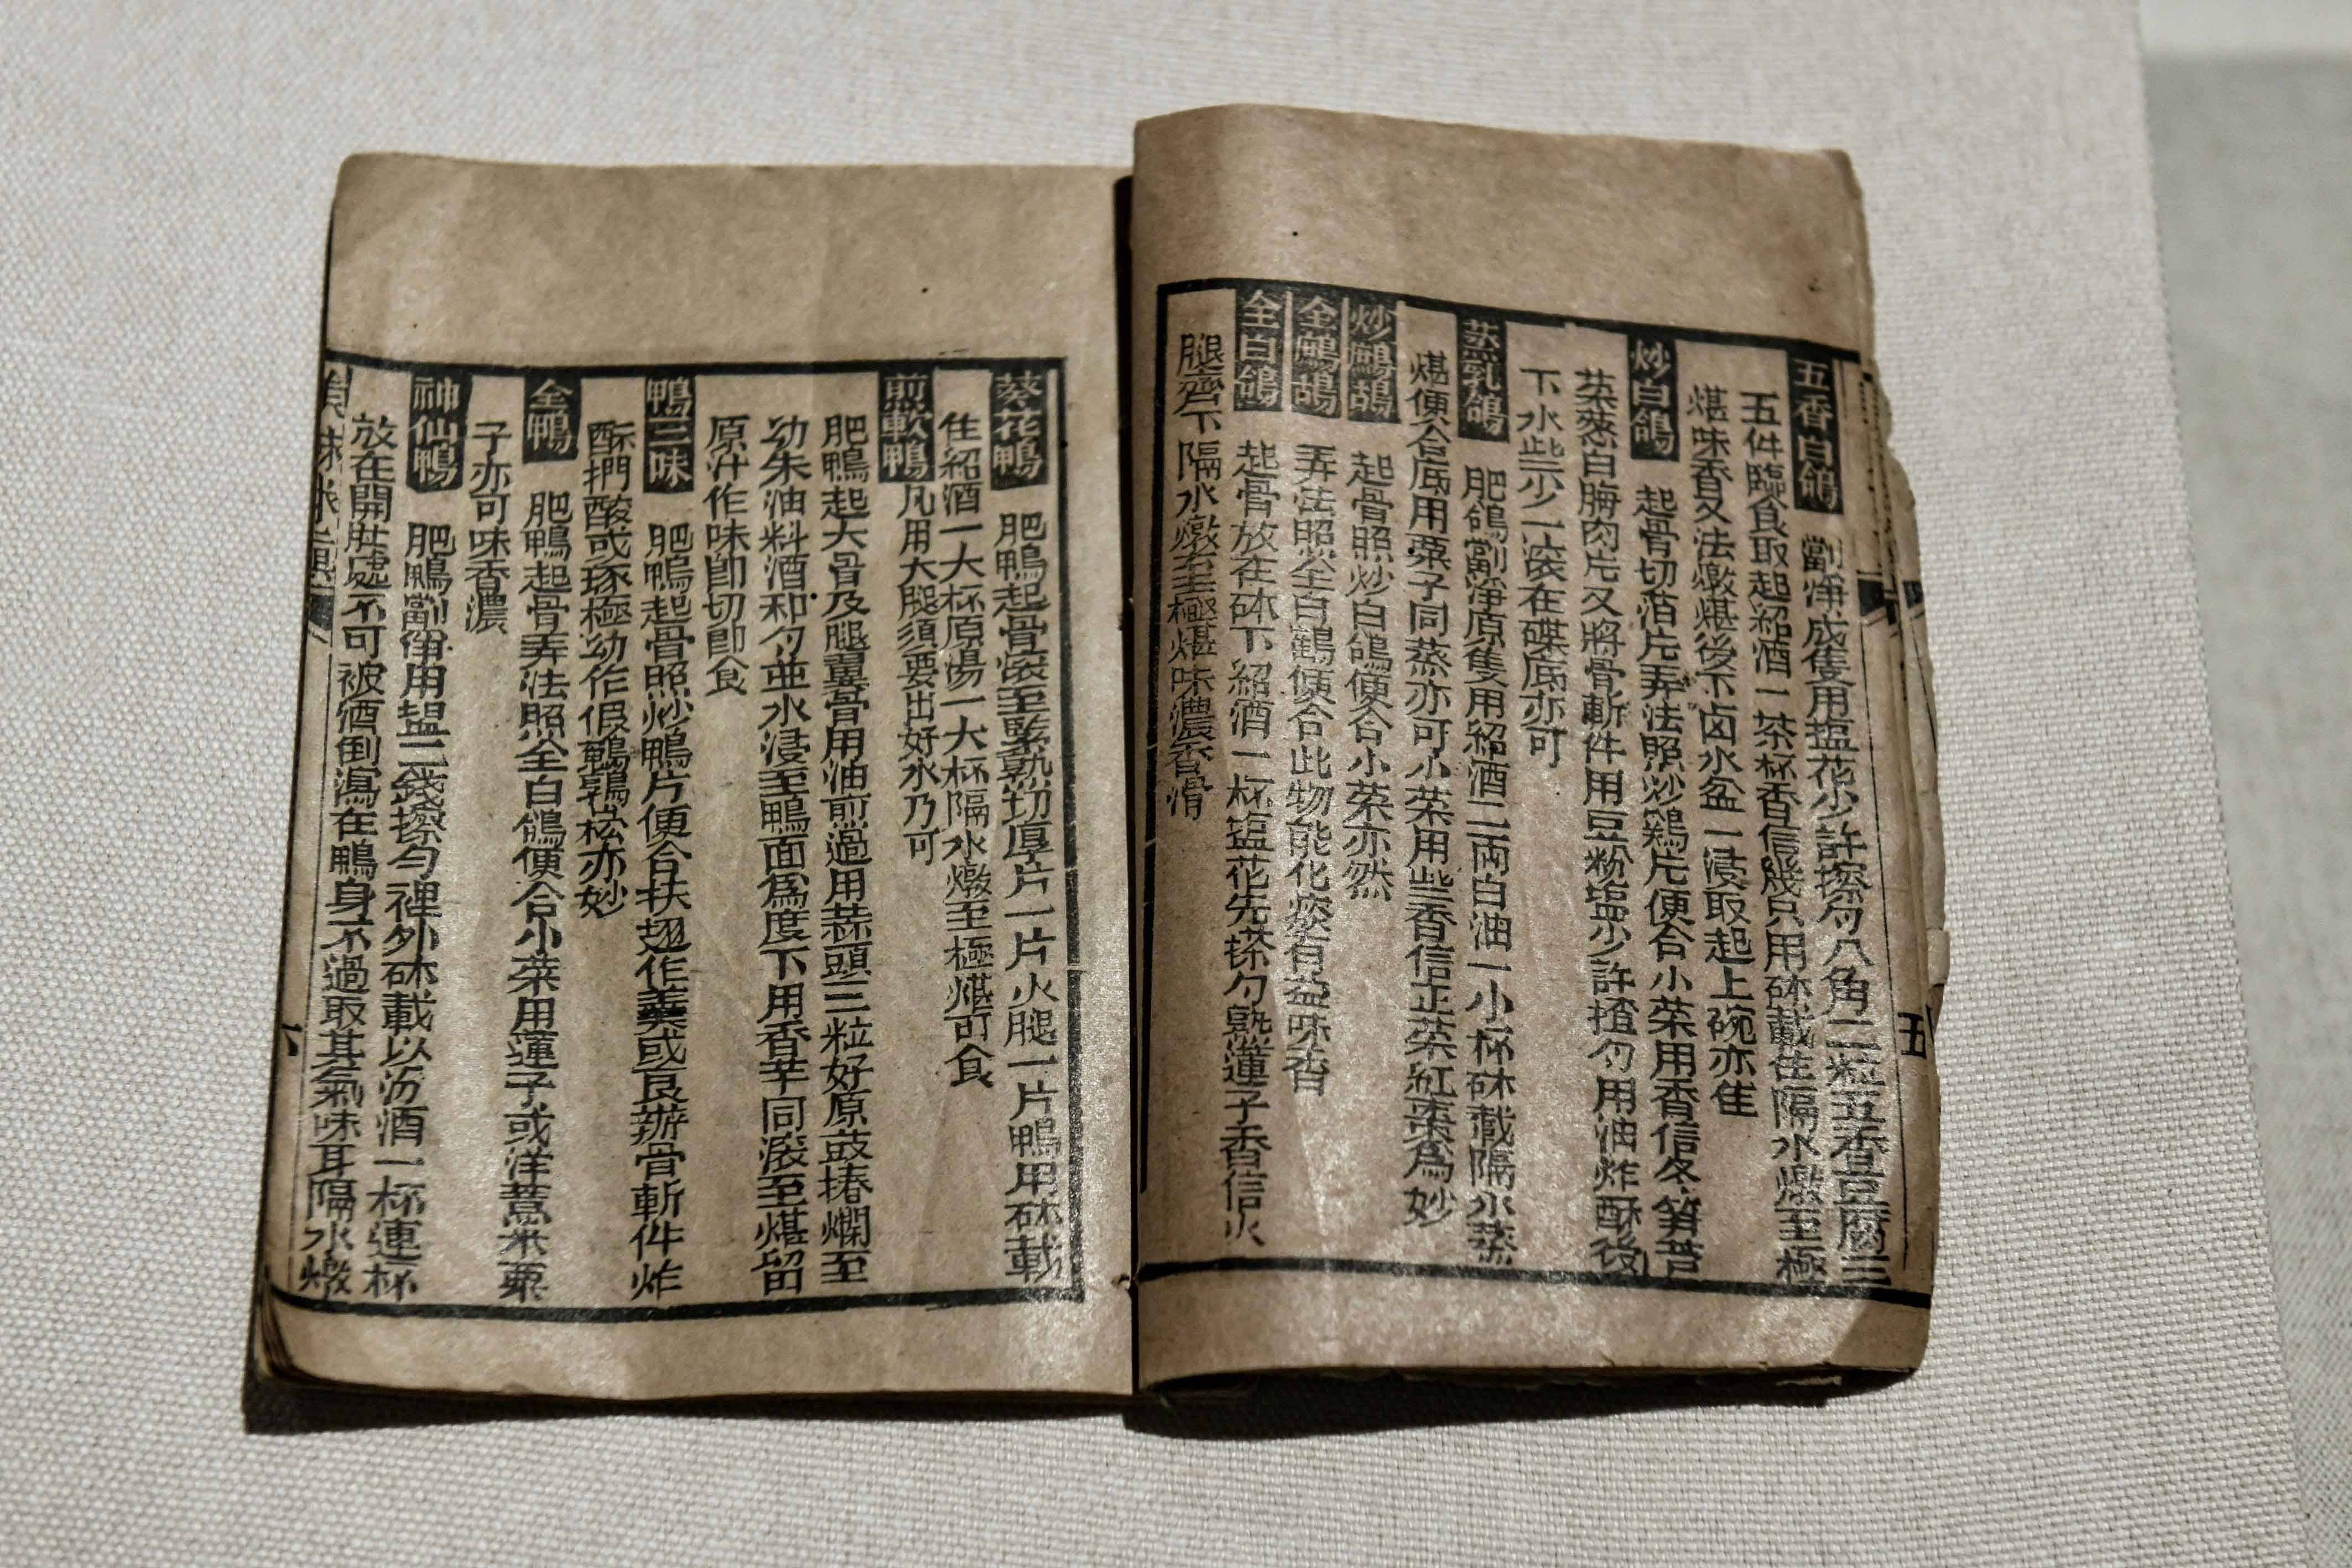 五香白鴿 劏淨成隻用塩花少許搽勻八角二粒五香豆腐三
五件臨食取起紹酒一茶杯香信幾只用砵載住隔水燉至極
煁味香又法燉煁後下卤水盆一浸取起上碗亦隹
炒白鴿 起骨切薄片弄法照炒鷄片便合小菜用香信冬筍芦
菜葱白脢肉片又將骨斬件用豆粉塩少許揸勻用油炸酥後
下水些少一滚在碟底亦可
蒸乳鴿 肥鴿劏淨原隻用紹酒二両白油一小杯砵載隔水蒸
煁便合底用栗子同蒸亦可小菜用些香信正菜紅棗為妙
炒鷓鴣 起骨照炒白鴿便合小菜亦然
全鷓鴣 弄法照全白鶴便合此物能化痰有益味香
全白鴿 起骨放在砵下紹酒一杯塩花先搽勻熟蓮子香信火
腿齊下隔水燉至極煁味濃香滑
五
葵花鴨 肥鴨起骨滚至緊熟切厚片一片火腿一片鴨用砵載
住紹酒一大杯原湯一大杯隔水燉至極煁可食
煎軟鴨 凡用大腿須要出好水乃可
肥鴨起大骨及腿翼骨用油煎過用蒜頭三粒好原豉摏爛至
幼朱油料酒和勻並水浸至鴨面為度下用香芊同滚至煁留
原汁作味卽切卽食
鴨三味 肥鴨起骨照炒鴨片便合扶翅作羹或艮辦骨斬件炸
酥捫酸或琢極幼作假鵪鶉崧亦妙
全鴨 肥鴨起骨弄法照全白鴿便合小菜用蓮子或洋薏米栗
子亦可味香濃
神仙鴨 肥鴨劏淨用塩二錢搽勻裡外砵載以汾酒一杯連杯
放在開肚處不可被酒倒瀉在鴨身不過取其氣味耳隔水燉